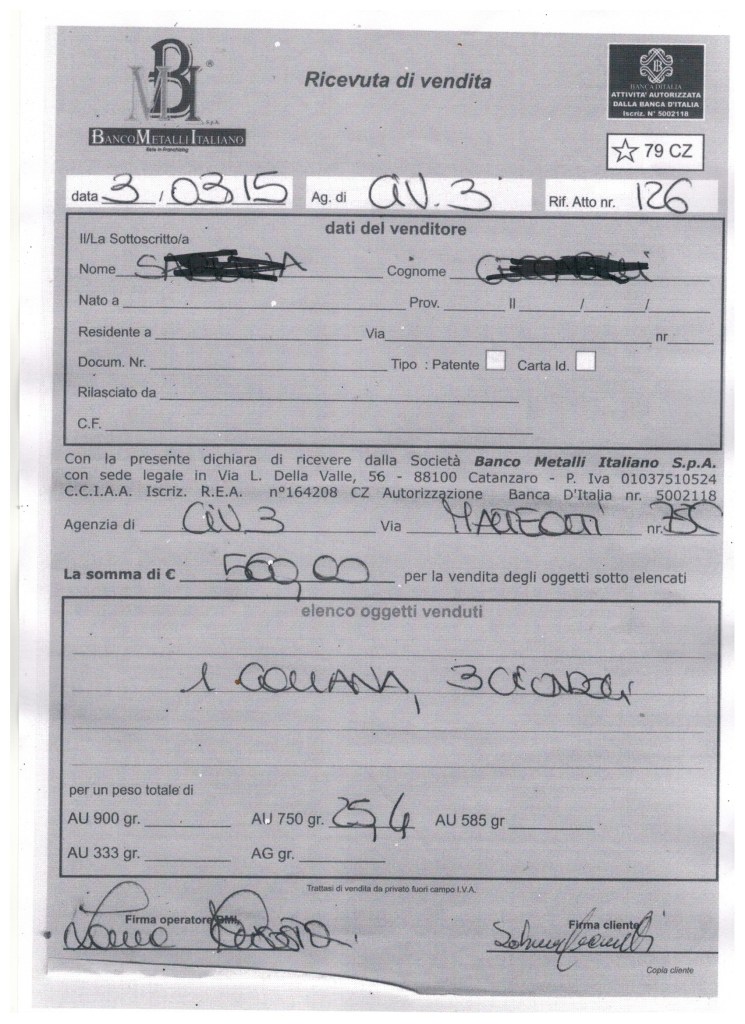 BMI ® S.p.A.
BANCOMETALLIITALIANO
Ricevuta di vendita
BANCA D'ITALIA
ATTIVITA' AUTORIZZATA
DALLA BANCA D'ITALIA
Iscriz. N° 5002118
79 CZ
data 3 / 03.15 Ag. di CIV. 3 Rif. Atto nr. 126
dati del venditore
Il/La Sottoscritto/a
Nome Cognome
Nato a Prov. Il / /
Residente a Via nr
Docum. Nr. Tipo : Patente Carta Id.
Rilasciato da
C.F.
Con la presente dichiara di ricevere dalla Società Banco Metalli Italiano S.p.A.
con sede legale in Via L. Della Valle, 56 - 88100 Catanzaro - P. Iva 01037510524
C.C.I.A.A. Iscriz. R.E.A. n°164208 CZ Autorizzazione Banca D'Italia nr. 5002118
Agenzia di CIV. 3 Via MATTEOTTI nr.
La somma di € 560,00 per la vendita degli oggetti sotto elencati
elenco oggetti venduti
1 COLLANA, 3 CIONDOLI
per un peso totale di
AU 900 gr. AU 750 gr. 25,4 AU 585 gr
AU 333 gr. AG gr.
Trattasi di vendita da privato fuori campo I.V.A.
Firma operatore BMI Firma cliente
Copia cliente